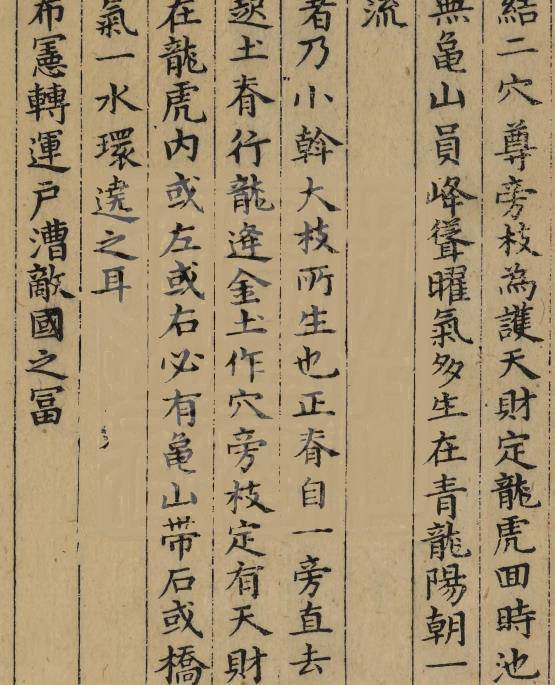 結二穴尊旁枝為護天財定龍虎囬時池
無龜山員峰聳曜氣多生在青龍陽朝一
流
者乃小斡大枝所生也正脊自一旁直去
起土脊行龍逄金土作穴旁枝定有天財
在龍虎内或左或右必有龜山帶石或橋
氣一水環遶之耳
布憲轉運戶漕敵國之冨